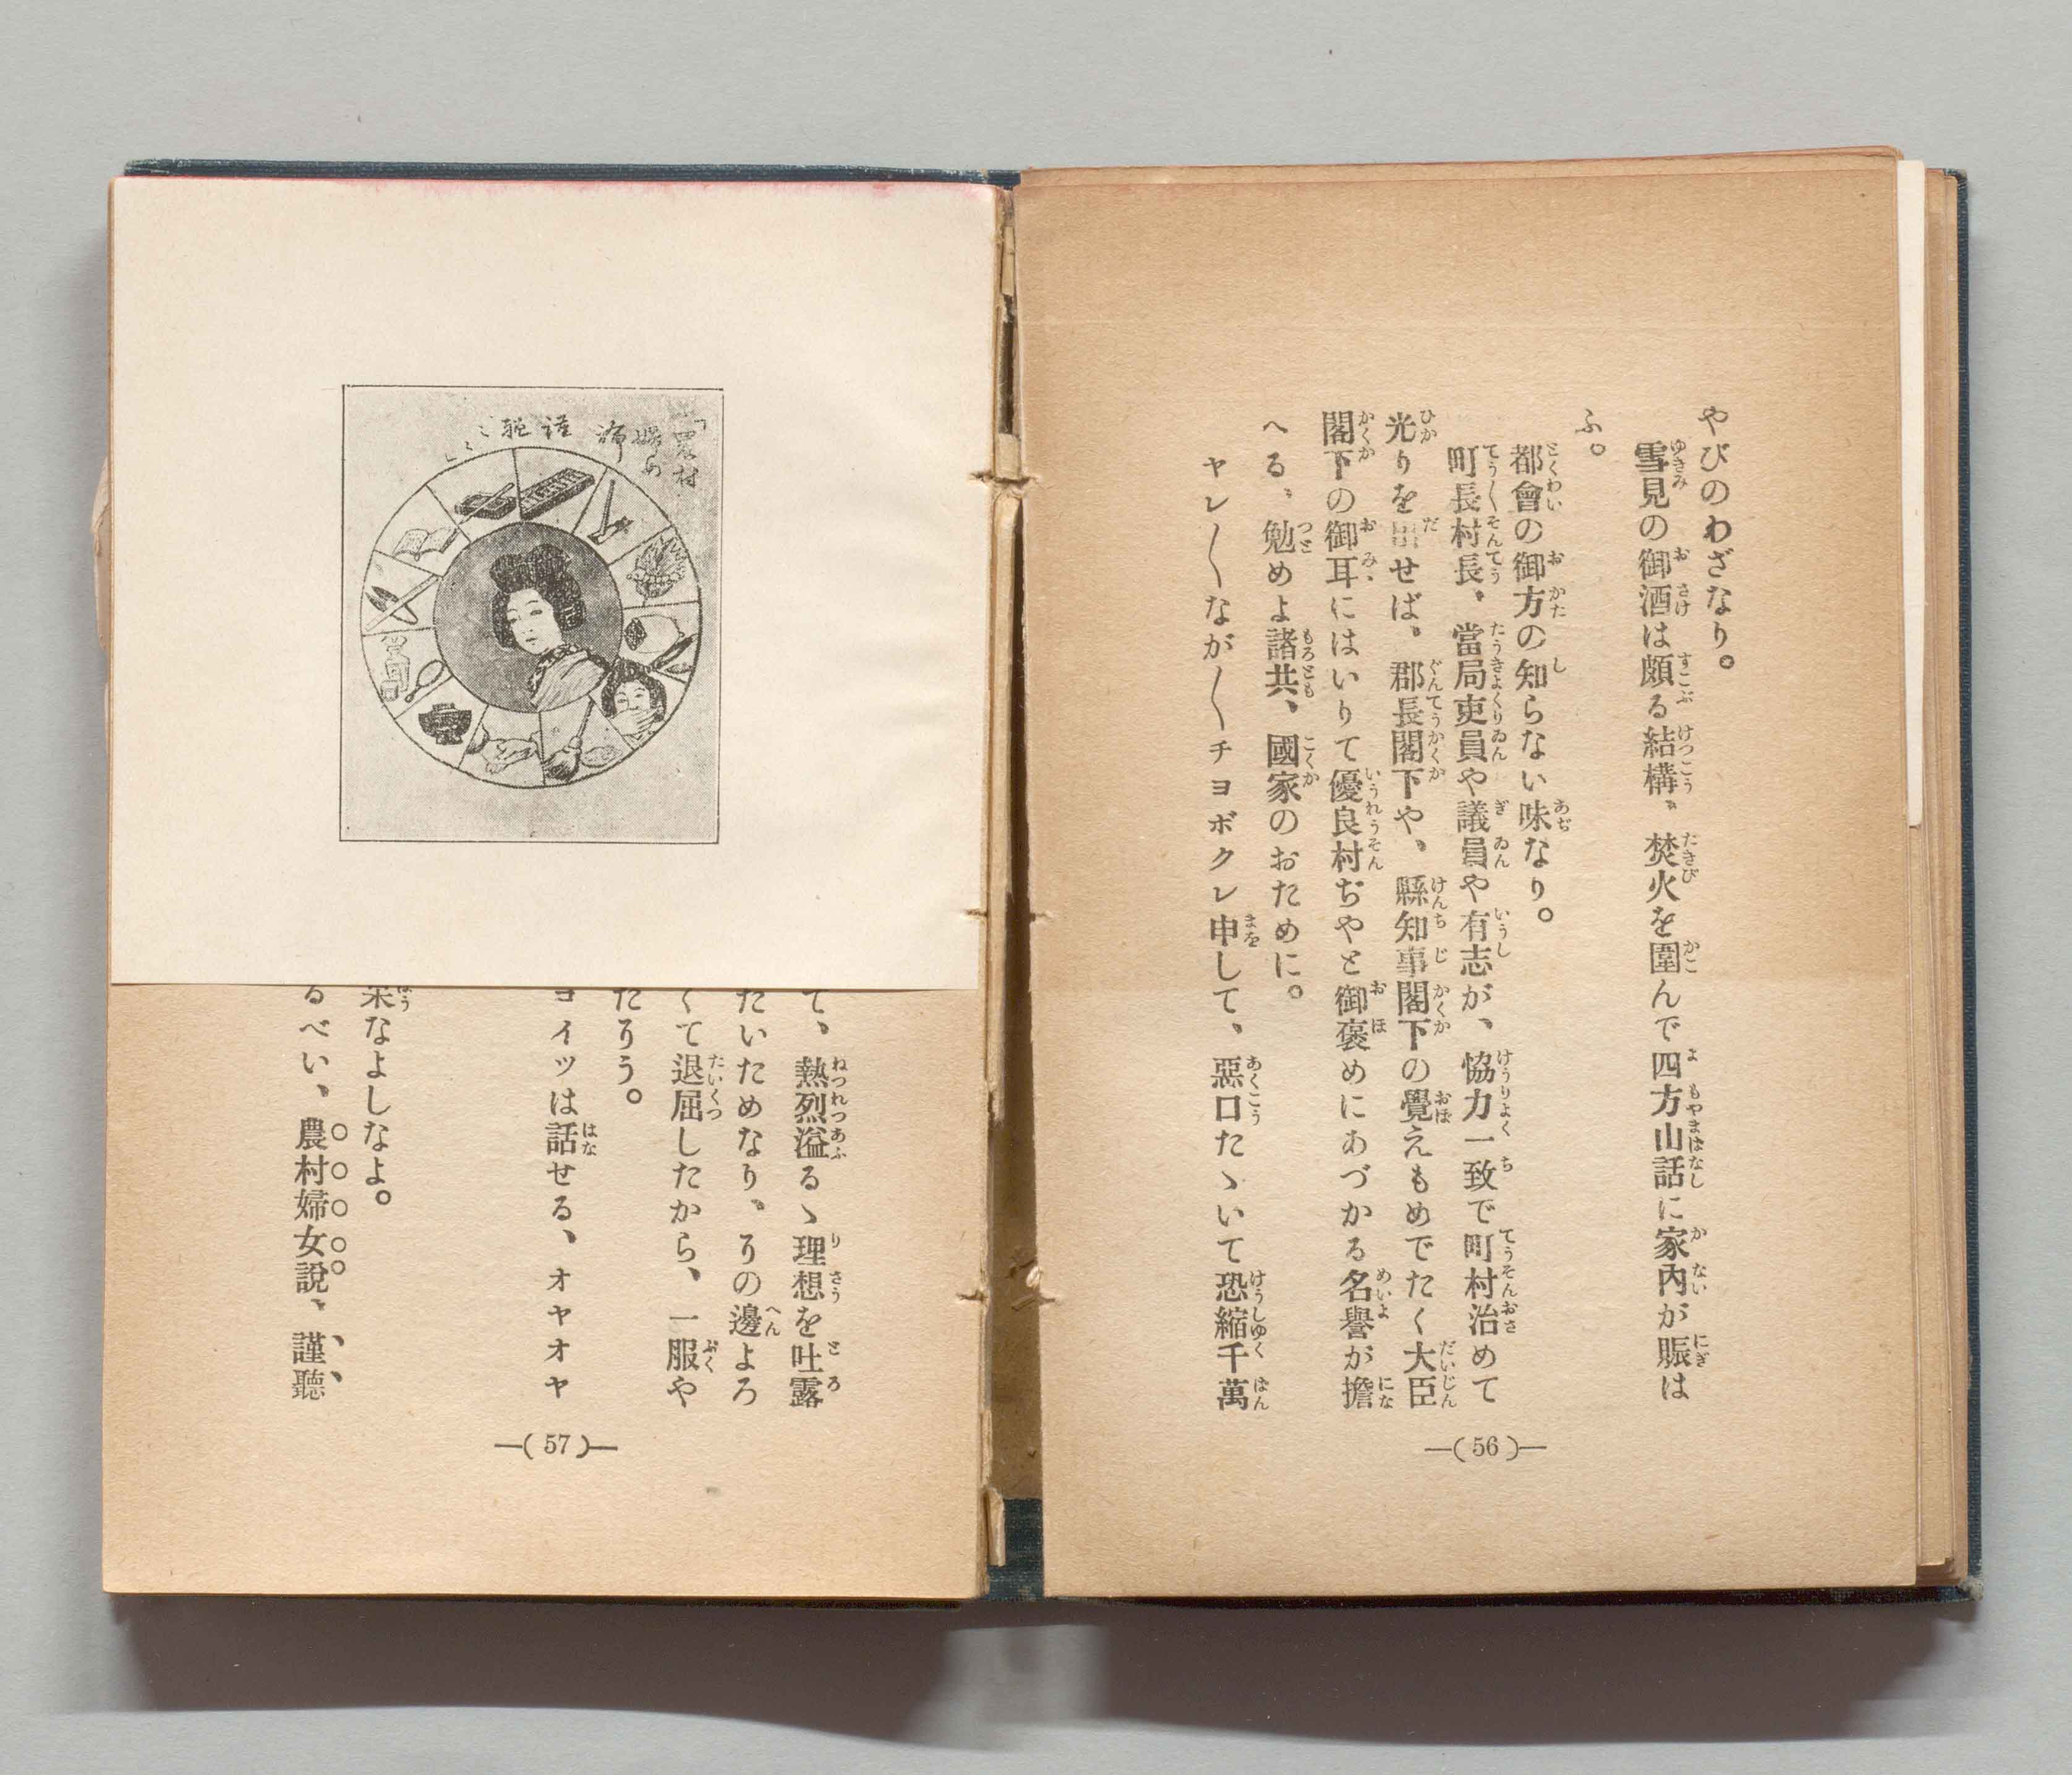 やびのわざなり。
雪見の御酒は頗る結構、焚火を圍んで四方山話に家内が賑は
ふ。
都會の御方の知らない味なり。
町長村長、當局吏員や議員や有志が、恊力一致で町村治めて
光りを出せば、郡長閣下や、縣知事閣下の覺えもめでたく大臣
閣下の御耳にはいりて優良村ぢやと御褒めにあづかる名譽が擔
へる、勉めよ諸共、國家のおために。
ヤレ〳〵なが〳〵チヨボクレ申して、惡口たゝいて恐縮千萬
―(56)―
「農村
婦女
謹聽
て、熱烈溢るゝ理想を吐露
たいためなり、りの邊よろ
くて退屈したから、一服や
たりう。
ヨイツは話せる、オヤオヤ
なよしなよ。
るべい、農村婦女說、謹聽
―(57)―